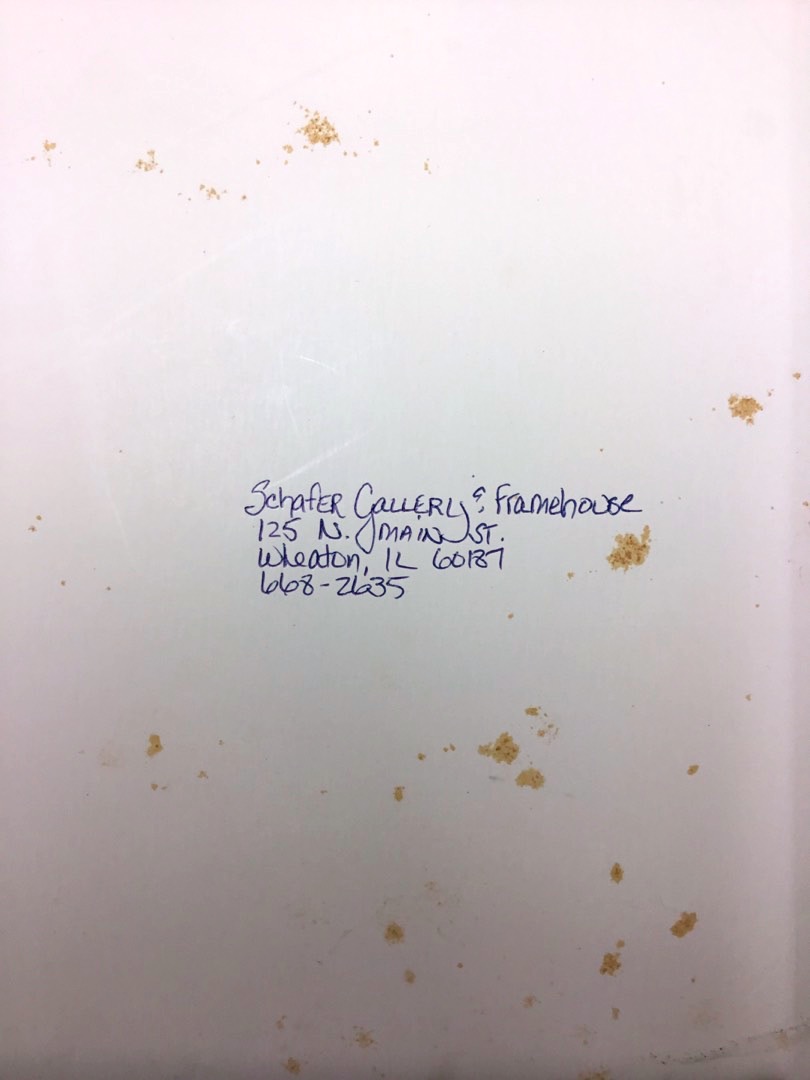 Schafer Gallery & Framehouse
125 N. Main St.
Wheaton, IL 60187
668-2635